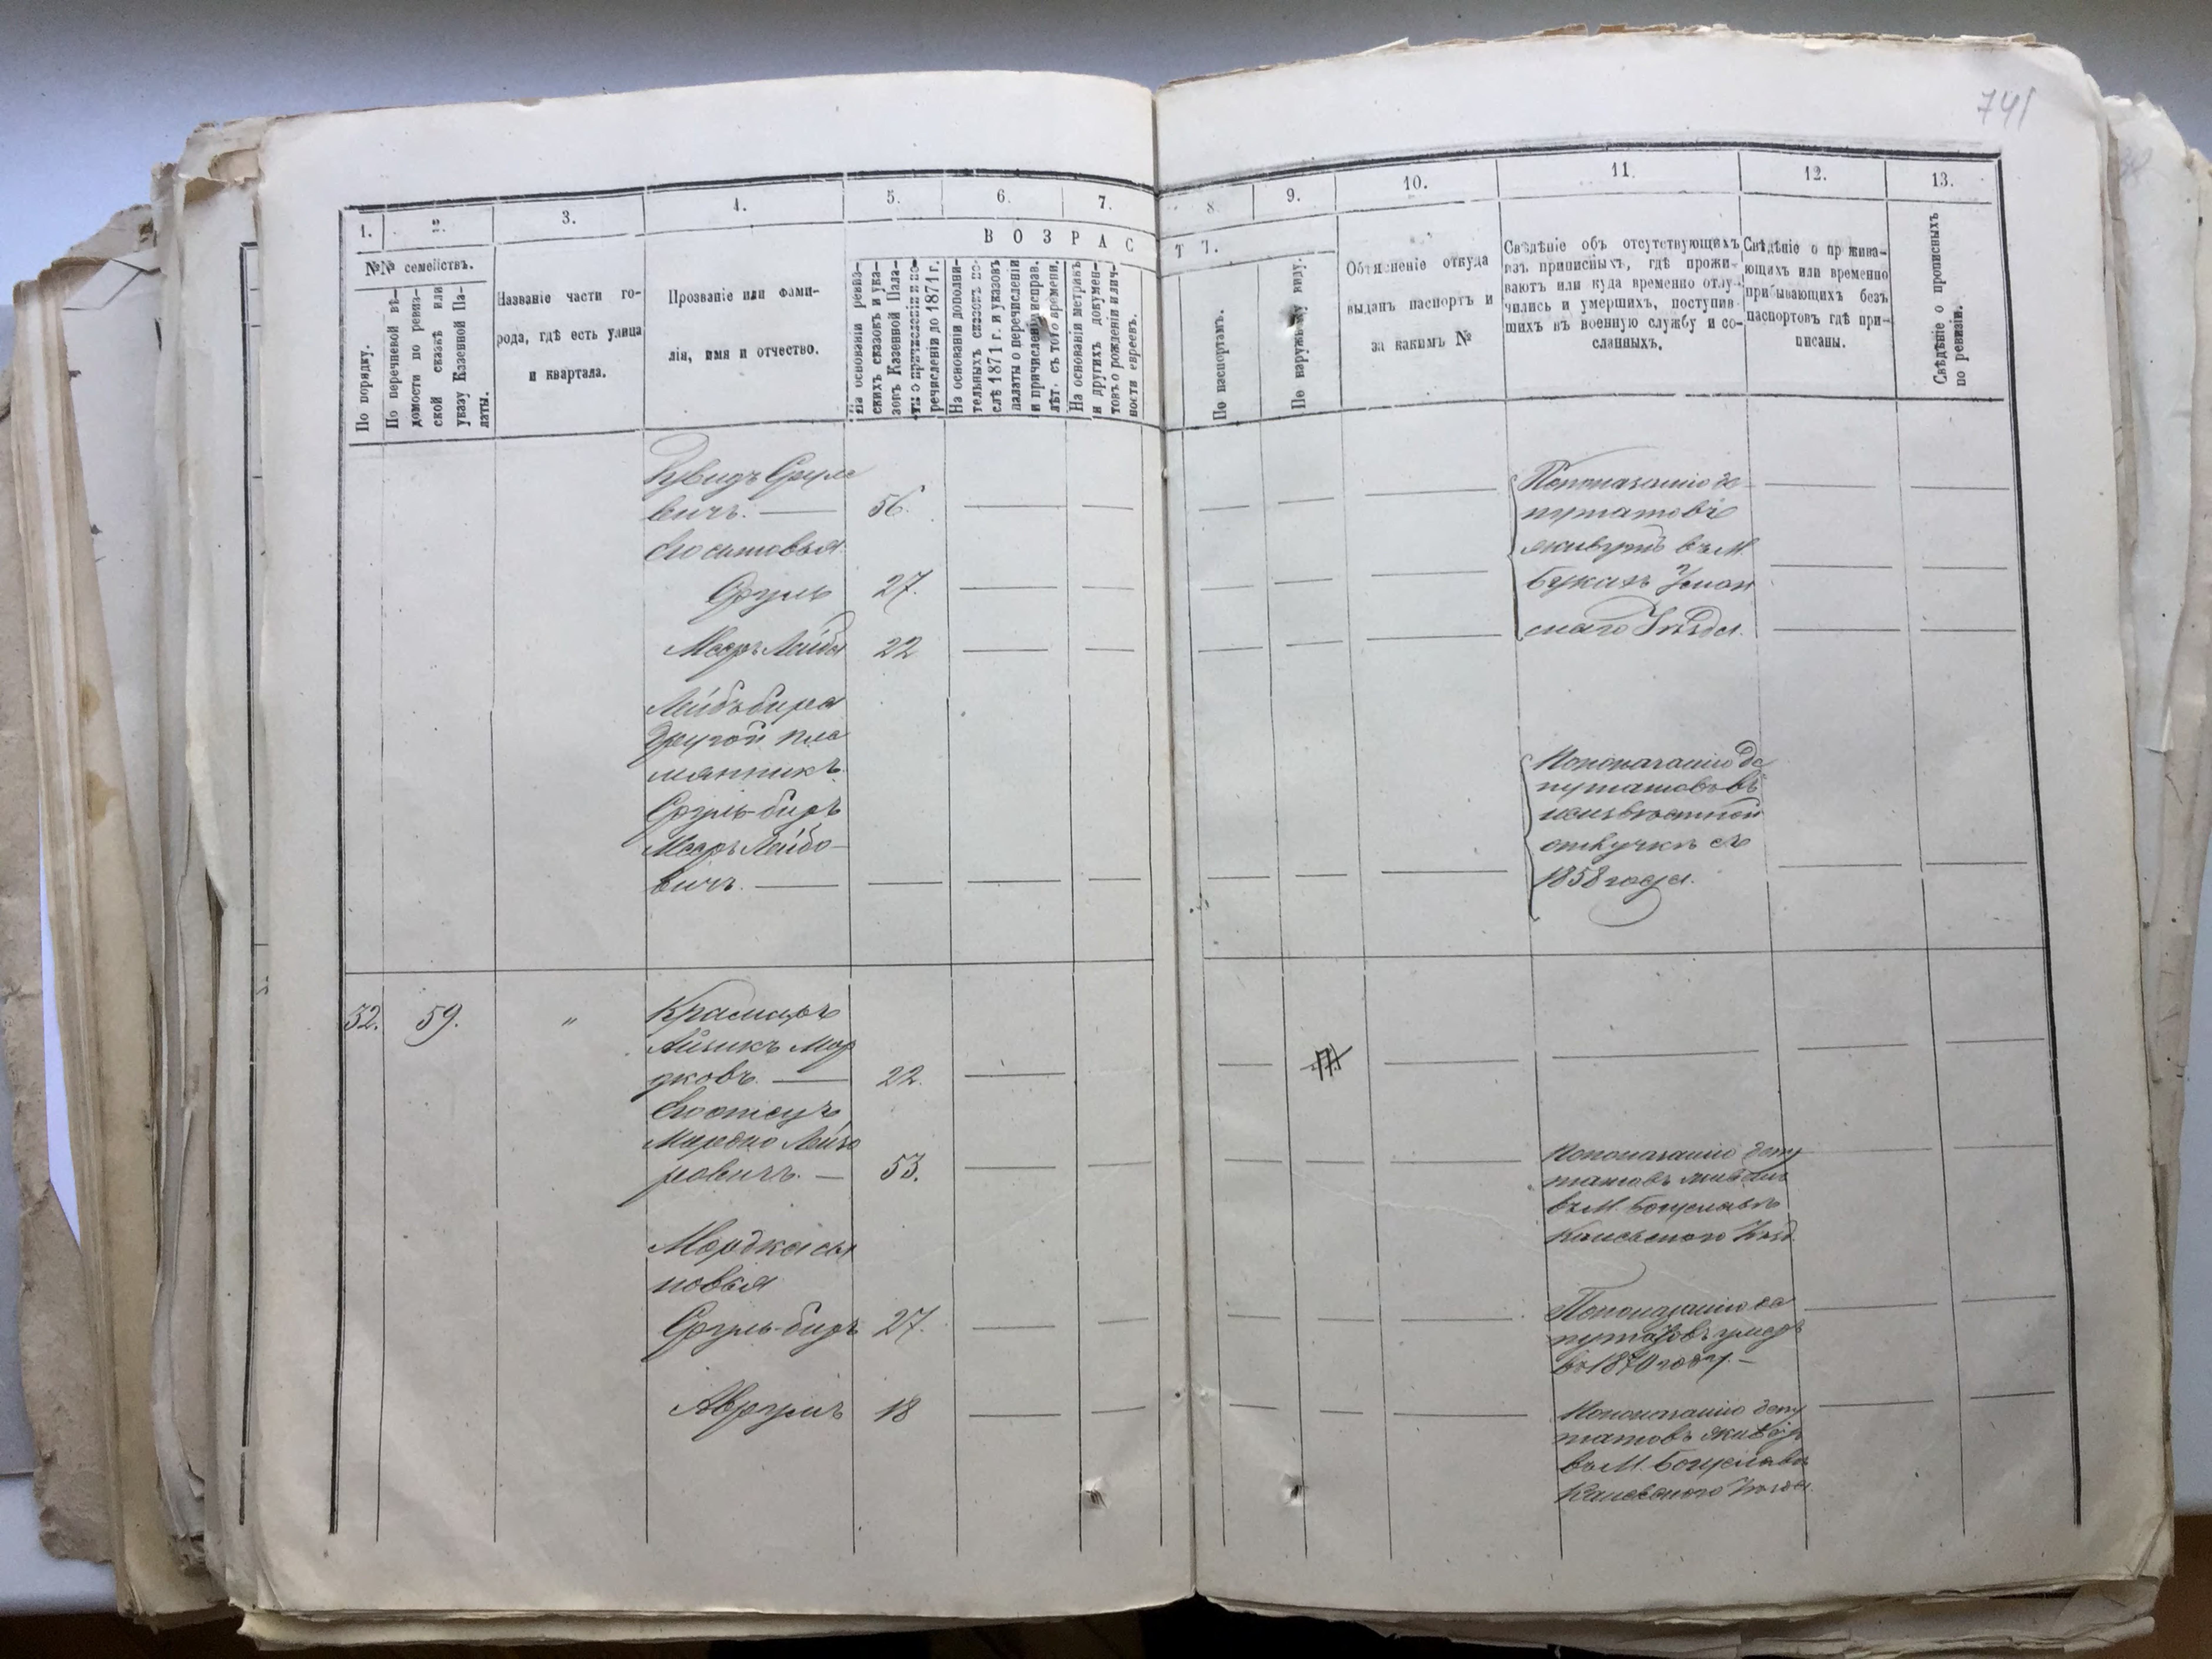 741
1.
2.
3.
4.
5.
6.
7.
8.
9.
10.
11.
12.
13.
№№ семействъ.
По порядку.
По перечневой вѣ-
домости по ревиз-
ской сказкѣ или
указу Казенной Па-
латы.
Названіе части го-
рода, гдѣ есть улица
и квартала.
Прозваніе или фами-
лія, имя и отчество.
В О З Р А С
Т Ъ.
На основаніи ревиз-
скихъ сказокъ и ука-
зовъ Казенной Пала-
ты о причисленіи и пе-
речисленіи до 1871 г.
На основаніи дополни-
тельныхъ сказокъ по-
слѣ 1871 г. и указовъ
палаты о перечисленіи
и причисленіи исправ.
лѣт. съ того времени.
На основаніи метрикъ
и другихъ докумен-
товъ о рожденіи и лич-
ности евреевъ.
По паспортамъ.
По наружному виду.
Объясненіе откуда
выданъ паспортъ и
за какимъ №
Свѣдѣніе объ отсутствующихъ
изъ приписныхъ, гдѣ прожи-
ваютъ или куда временно отлу-
чились и умершихъ, поступив
шихъ въ военную службу и со-
сланныхъ.
Свѣдѣніе о прожива-
ющихъ или временно
прибывающихъ безъ
паспортовъ гдѣ при-
писаны.
Свѣдѣніе о прописныхъ
по ревизіи.
Сруле
вичъ. — 56.
Его сыновья
Сруль 27.
Мееръ Лейба 22
По показанію де
путатовъ
живутъ въ М
Букахъ Уман
скаго Уѣзда.
другой пле
мянникъ
Сруль-беръ
Мееръ Лейбо-
вичъ. —
По показанію де
путатовъ въ
неизвѣстной
отлучкѣ съ
1858 года.
52. 59. „ Крамаръ
Айзикъ Мор
дковъ. — 22.
Его отецъ
Мордко Лейзе
ровичъ. — 53.
По показанію депу
татовъ живетъ
въ М. Богуславѣ
Каневскаго Уѣзд.
Мордка сы
новья
Сруль-беръ 27.
По показанію де
путатовъ умеръ
въ 1870 году. —
Аврумъ 18
По показанію депу
татовъ живетъ
въ М. Богуславѣ
Каневскаго Уѣзда